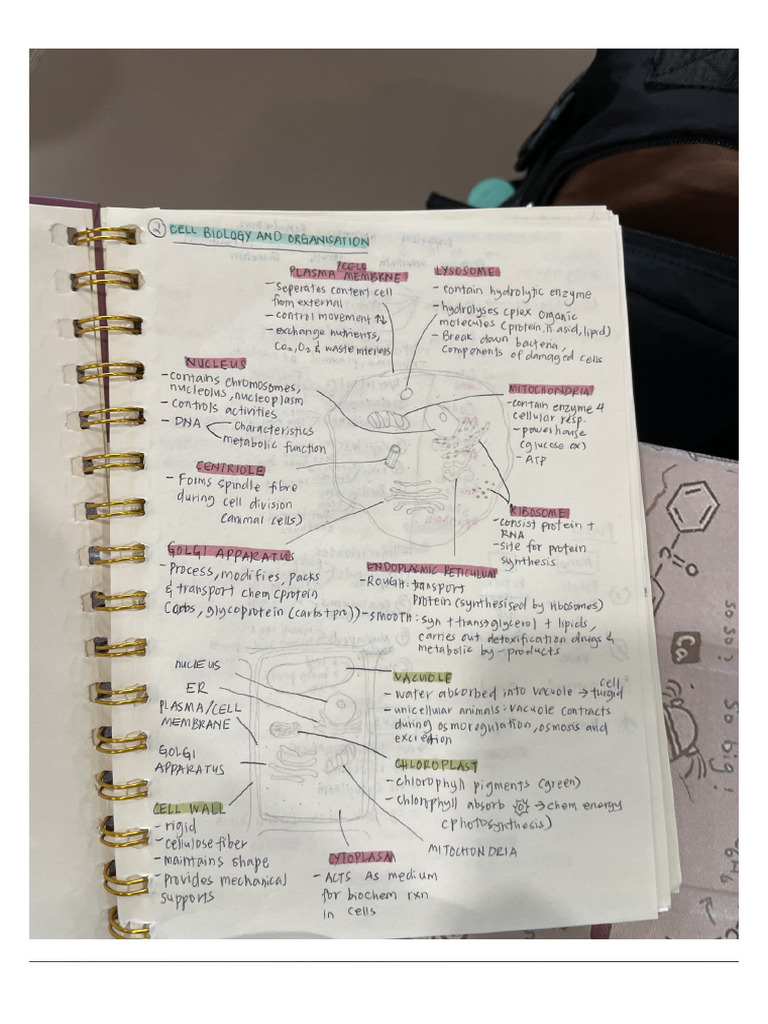 ② CELL BIOLOGY AND ORGANISATION
/CELL
PLASMA MEMBRNE
- Seperates content cell
from external
- control movement ⇅
- exchange nutrients,
CO2, O2 & waste
LYSOSOME
- contain hydrolytic enzyme
- hydrolyses cplex organic
molecules (protein, n. asid, lipid)
- Break down bacteria,
components of damaged cells
NUCLEUS
- contains chromosomes,
nucleolus, nucleoplasm
- controls activities
- DNA < characteristics
metabolic function
MITOCHONDRIA
- contain enzyme 4
cellular resp.
- powerhouse
(glucose ox)
- ATP
CENTRIOLE
- Forms spindle fibre
during cell division
(animal cells)
RIBOSOME
- consist protein +
RNA
- site for protein
synthesis
GOLGI APPARATUS
- Process, modifies, packs
& transport chem (protein
Carbs, glycoprotein (carbs+pro))
ENDOPLASMIC RETICULUM
- ROUGH: transport
Protein (synthesised by ribosomes)
- SMOOTH: syn + trans glycerol + lipids,
carries out detoxification drugs &
metabolic by-products
NUCLEUS
ER
PLASMA/CELL
MEMBRANE
GOLGI
APPARATUS
CELL WALL
- rigid
- cellulose fiber
- maintains shape
- Provides mechanical
supports
VACUOLE
- water absorbed into vacuole → cell turgid
- unicellular animals: vacuole contracts
during osmoregulation, osmosis and
excretion
CHLOROPLAST
- chlorophyll pigments (green)
- chlorphyll absorb → chem energy
(photosynthesis)
MITOCHONDRIA
CYTOPLASM
- ACTS AS medium
for biochem rxn
in cells
so so?
Ca
So big!